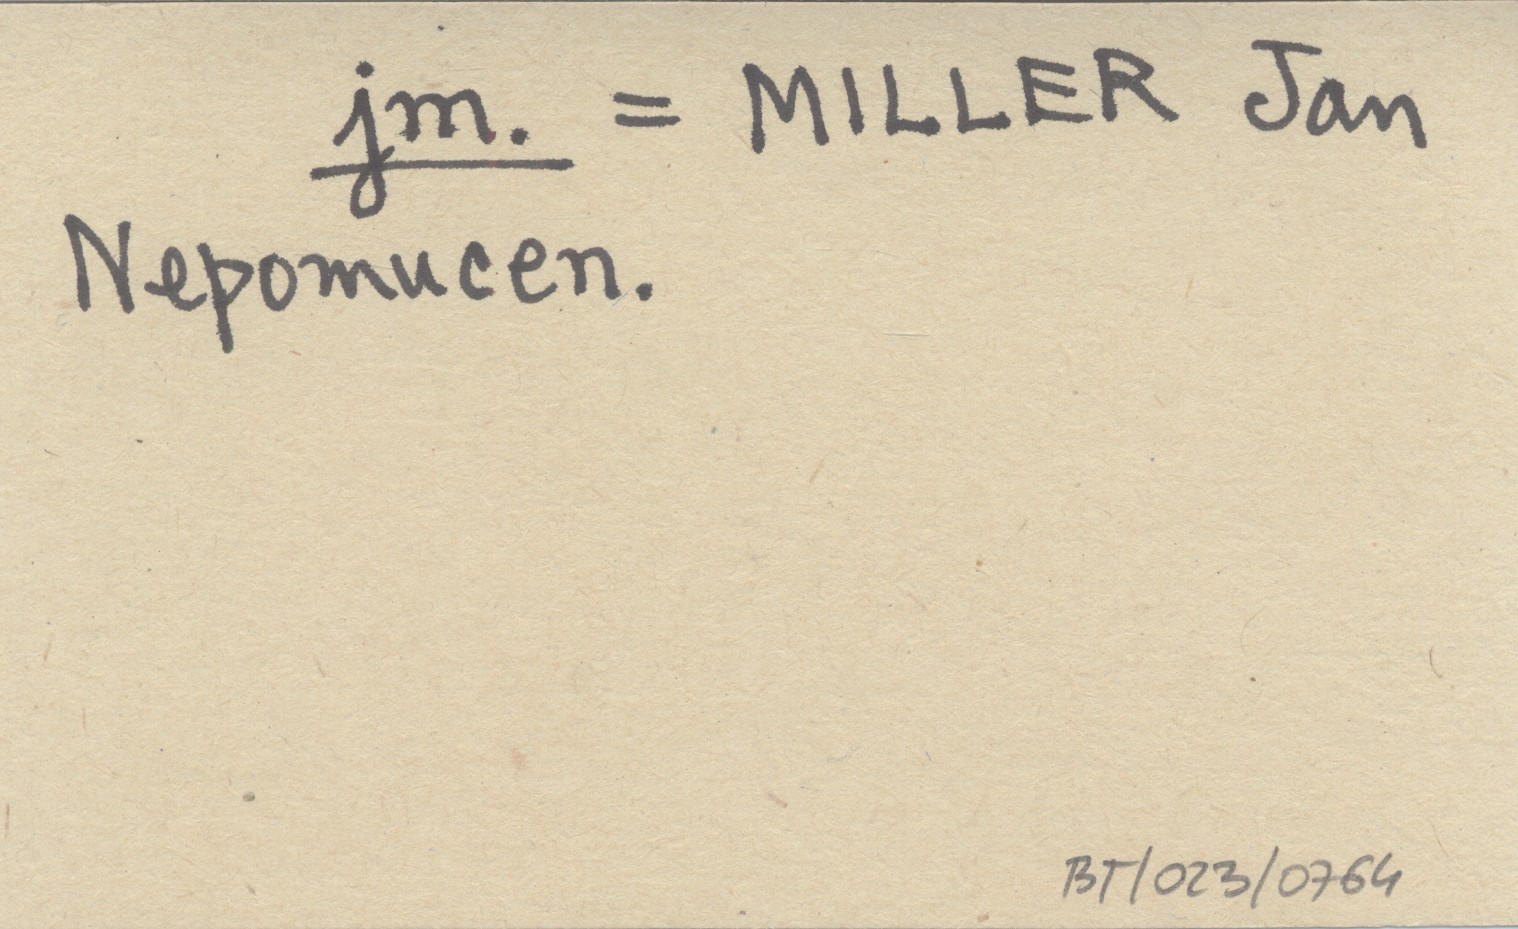 jm. = MILLER Jan
Nepomucen.
BT/023/0764